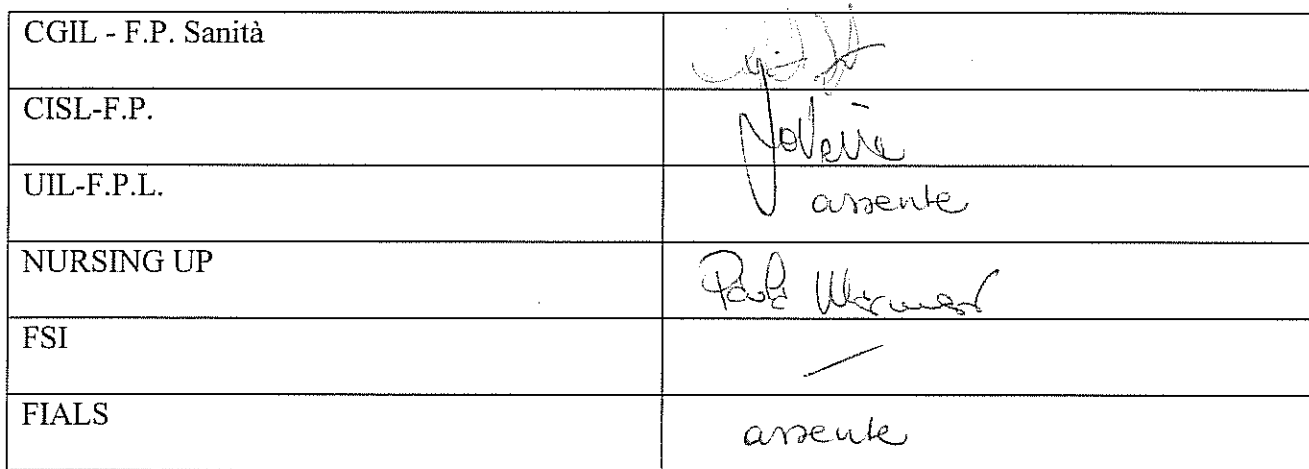 CGIL - F.P. Sanità
CISL-F.P.
UIL-F.P.L. assente
NURSING UP Paola
FSI
FIALS assente